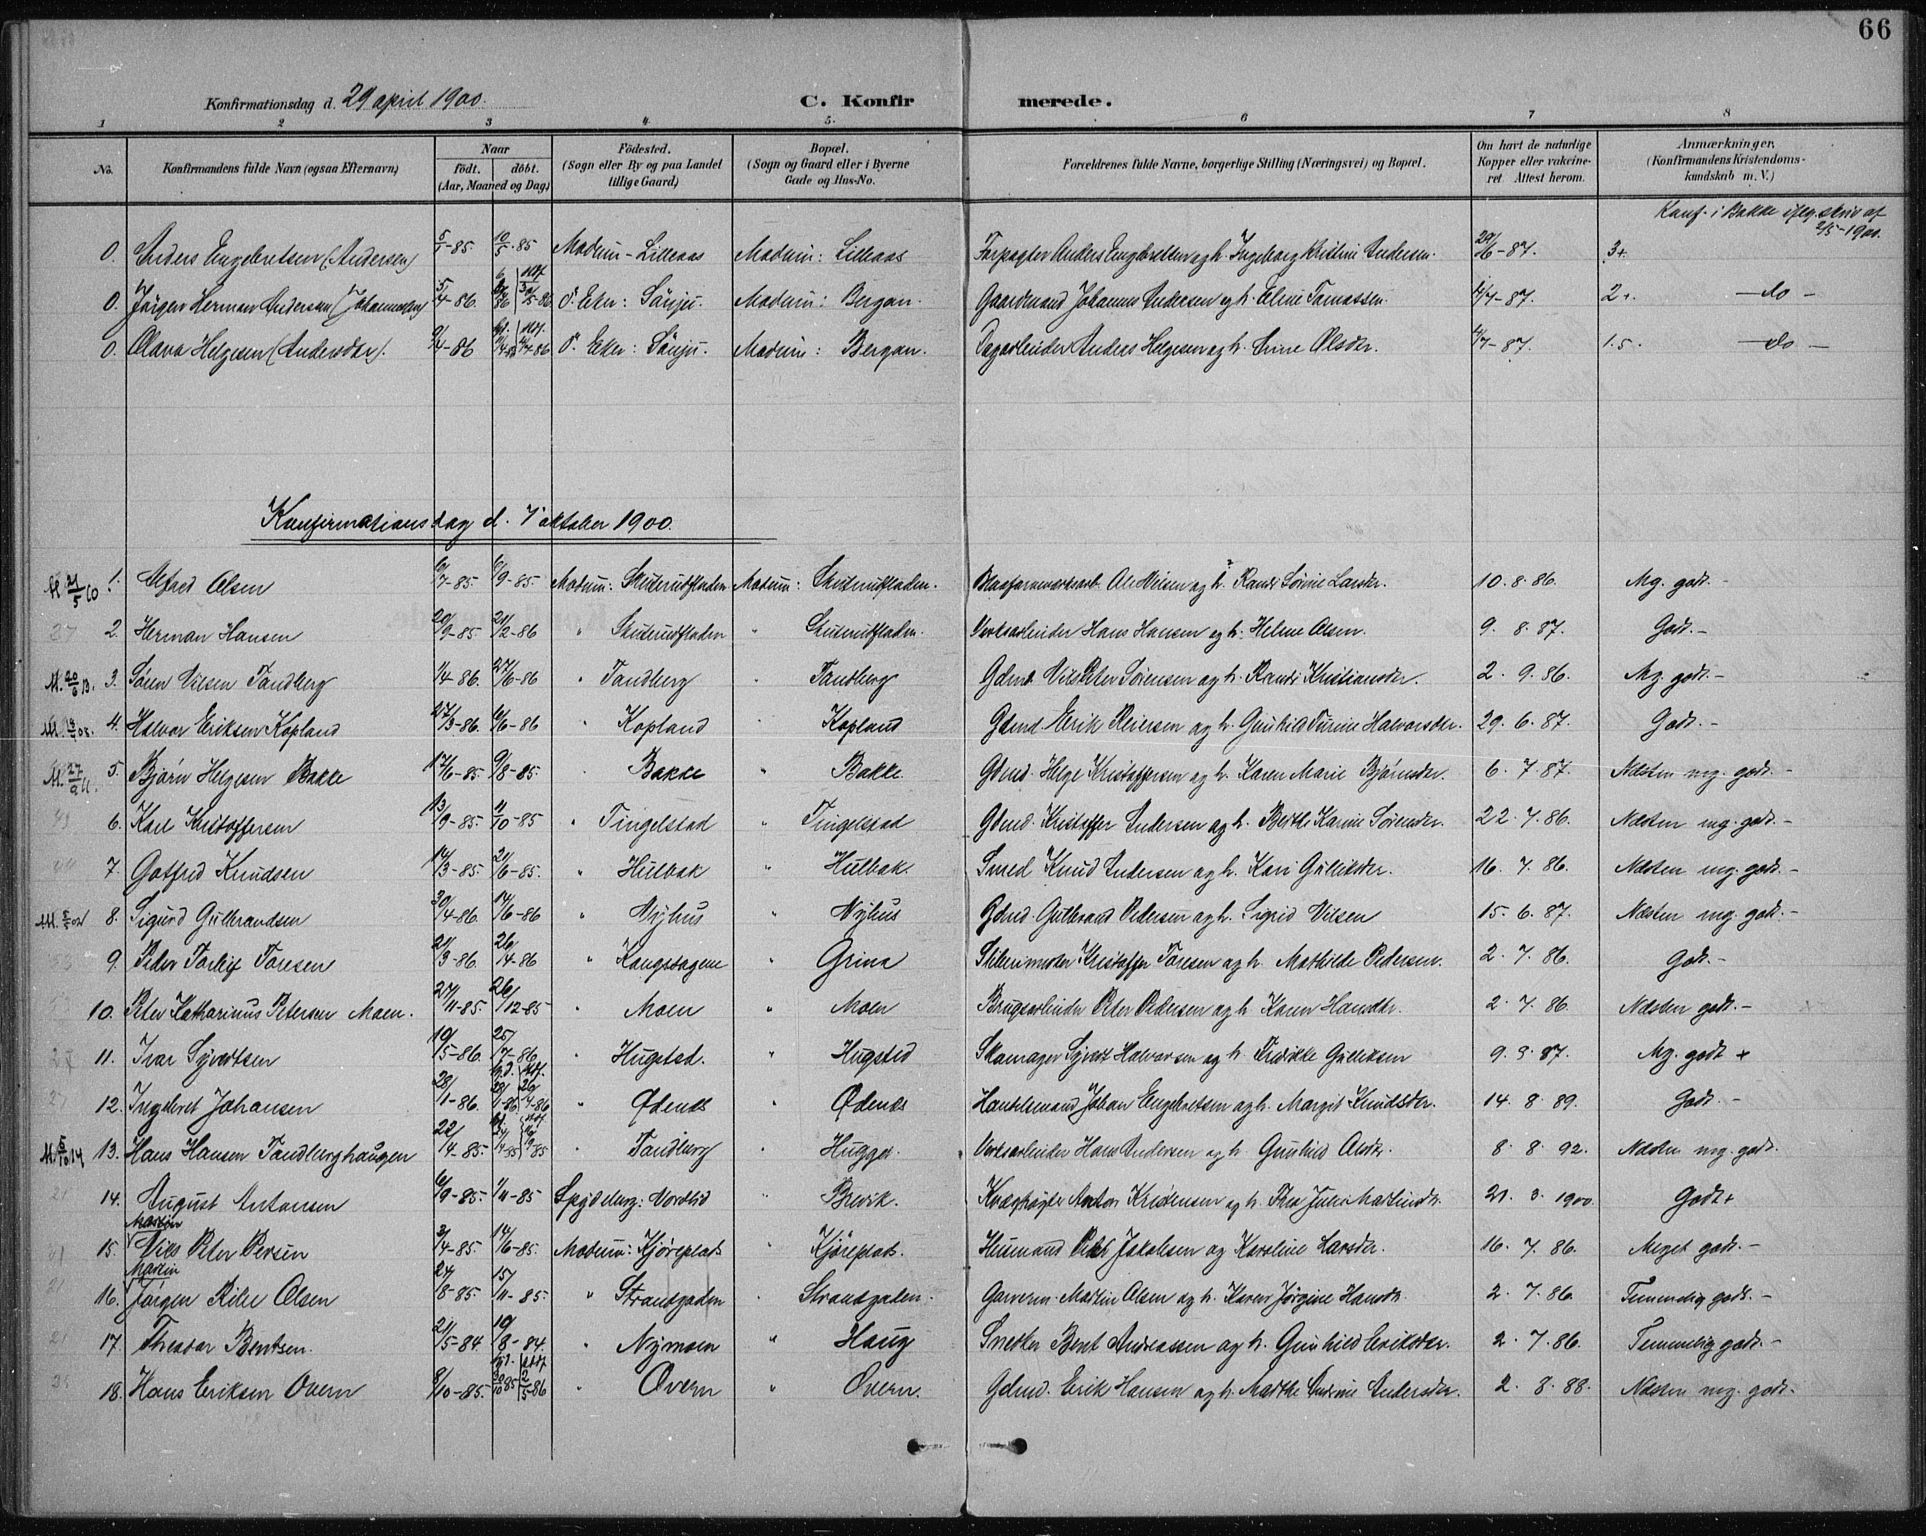 66
Konfirmationsdag d. 29 april 1900.
C. Konfir merede.
1 2 3 4. 5. 6 7 8
No. Konfirmandens fulde Navn (ogsaa Efternavn) Naar født. døbt. (Aar, Maaned og Dag) Fødested. (Sogn eller By og paa Landet tillige Gaard) Bopæl. (Sogn og Gaard eller i Byerne Gade og Hus-No. Forældrenes fulde Navne, borgerlige Stilling (Næringsvei) og Bopæl. Om havt de naturlige Kopper eller vakcineret Attest herom. Anmærkninger. (Konfirmandens Kristendomskundskab m. V.)
Konf. i Bakke ifølg. skriv af 2/5-1900.
0. Anders Engebretsen (Andersen) 5/1-85 10/5-85 Modum-Lilleaas Modum: Lilleaas Forpagter Anders Engebretsen og h. Ingeborg Kristine Andersen. 29/6-87. 3+
0. Jörgen Herman Andersen (Johannessen) 5/4-86. Ö. Eker: Sönju. Modum: Bergan. Gaardmand Johannes Andersen og h. Eline Tomassen. 4/7-87. 2+. - do -
0. Olava Helgesen (Andersdtr). 9/4-86 Ö. Eker: Sönju. Modum: Bergan. Dagarbeider Anders Helgesen og h. Trine Olsdtr. 4/7-87. 1.5. - do -
Konfirmationsdag d. 7 oktober 1900.
M 21/5 10 1. Alfred Olsen 6/7-85. 6/9-85. Modum: Skuterudfladen Modum: Skuterudfladen. Blaafarveverksarb. Ole Nilsen og h. Randi Sørine Larsdtr. 10.8.86. Mg. godt.-
2. Herman Hansen 20/9-85. 21/2-86 " Skuterudfladen " Skuterudfladen. Verksarbeider Hans Hansen og h. Helene Olsen. 9. 8. 87. Godt.-
M. 20/6 13. 3. Sören Nilsen Tandberg 1/4-86. 27/6-86 " Tandberg " Tandberg Gdmd. Nils Peter Sörensen og h. Randi Kristiansdtr. 2. 9. 86. Mg. godt.-
4. Halvor Eriksen Kopland 27/3-86. 6/6-86 " Kopland " Kopland Gdmd. Erik Reiersen og h. Gunhild Turine Halvorsdtr. 29. 6. 87. Godt.-
M. 27/9 11. 5. Björn Helgesen Bakke 17/6-85. 9/8-85. " Bakke " Bakke. Gdmd. Helge Kristoffersen og h. Karen Marie Björnsdtr. 6. 7. 87. Næsten mg. godt.-
6. Karl Kristoffersen 13/9-85. 11/10-85 " Tingelstad " Tingelstad Gdmd. Kristoffer Andersen og h. Berthe Karine Sörensdtr. 22. 7. 86. Næsten mg. godt.-
7. Gotfred Knudsen 14/3-85. 21/6-85. " Hulbak " Hulbak. Smed Knud Andersen og h. Kari Gulliksdtr. 16. 7. 86. Næsten mg. godt.-
8. Sigurd Gulbrandsen 30/4-86. 14/6-86 " Nyhus " Nyhus Gdmd. Gulbrand Pedersen og h. Sigrid Nilsen 15. 6. 87. Næsten mg. godt.-
9. Peder Torleif Toresen 21/3-86. 26/4-86 " Kongssagene " Grina Stillerimester Kristoffer Toresen og h. Mathilde Pedersen. 2. 7. 86. Godt.-
10. Peter Katharinus Petersen Moen. 27/11-85. 26/12-85 " Moen " Moen Brugsarbeider Peter Pedersen og h. Karen Hansdtr. 2. 7. 86. Næsten godt.-
11. Ivar Syvertsen 19/5-86. 25/7-86. " Hugstad. " Hugsted Skomager Syvert Halvorsen og h. Fredrikke Gulliksen 9. 9. 87. Mg. godt +
12. Ingebret Johansen 28/1-86. " Ødenes " Ødenes Handelsmand Johan Engebretsen og h. Margit Knudsdtr. 14. 8. 89. Godt.-
M. 5/10 14 13. Hans Hansen Tandberghaugen 22/4-85. " Tandberg " Hugger. Verksarbeider Hans Andersen og h. Gunhild Olsdtr. 8. 8. 92. Næsten mg. godt.
14. August Antonsen 6/9-85. 1/11-85 Spydeberg: Nordlid " Brevik. Kvægrögter Anton Kristensen og h. Thea Julie Martinsdtr. 21. 3. 1900. Godt+
Martin
15. Nils Peter Persen 3/4-85. 14/6-85. Modum: Kjöreplads " Kjöreplads. Husmand Peter Jakobsen og Karoline Larsdtr. 16. 7. 86. Meget godt.-
Martin
16. Jörgen Olsen 24/8-85. 15/11-85. " Strandgaden " Strandgaden. Garverm. Martin Olsen og h. Karen Jörgine Hansdtr. 2. 7. 86. Temmelig godt.-
17. Theodor Bentsen. 21/5-84. 10/8-84. " Nymoen " Haug Snedker Bent Andreassen og h. Gunhild Eriksdtr. 2. 7. 86. Temmelig godt.-
18. Hans Eriksen Overn 8/10-85. " Overn " Overn. Gdmd. Erik Hansen og h. Marthe Andrine Andersdtr. 2. 8. 88. Næsten mg. godt.